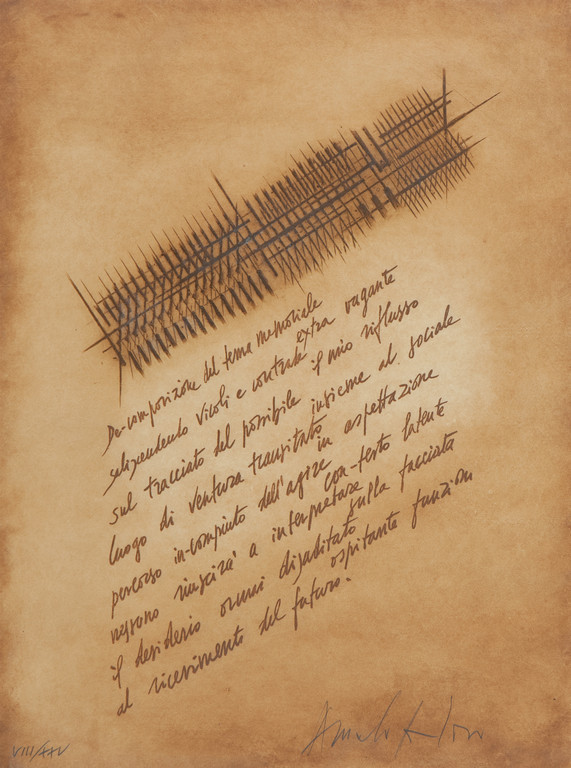 De-composizione del tema memoriale
selciendendo vicoli e contrade extra vagante
sul tracciato del possibile il mio riflusso
luogo di ventura transitato insieme al sociale
percorso in-compiuto dell'agire in aspettazione
nessuno riuscirà a interpretare con-testo latente
il desiderio ormai disabitato sulla facciata
al ricevimento del futuro. ospitante funzioni
VIII/XXV